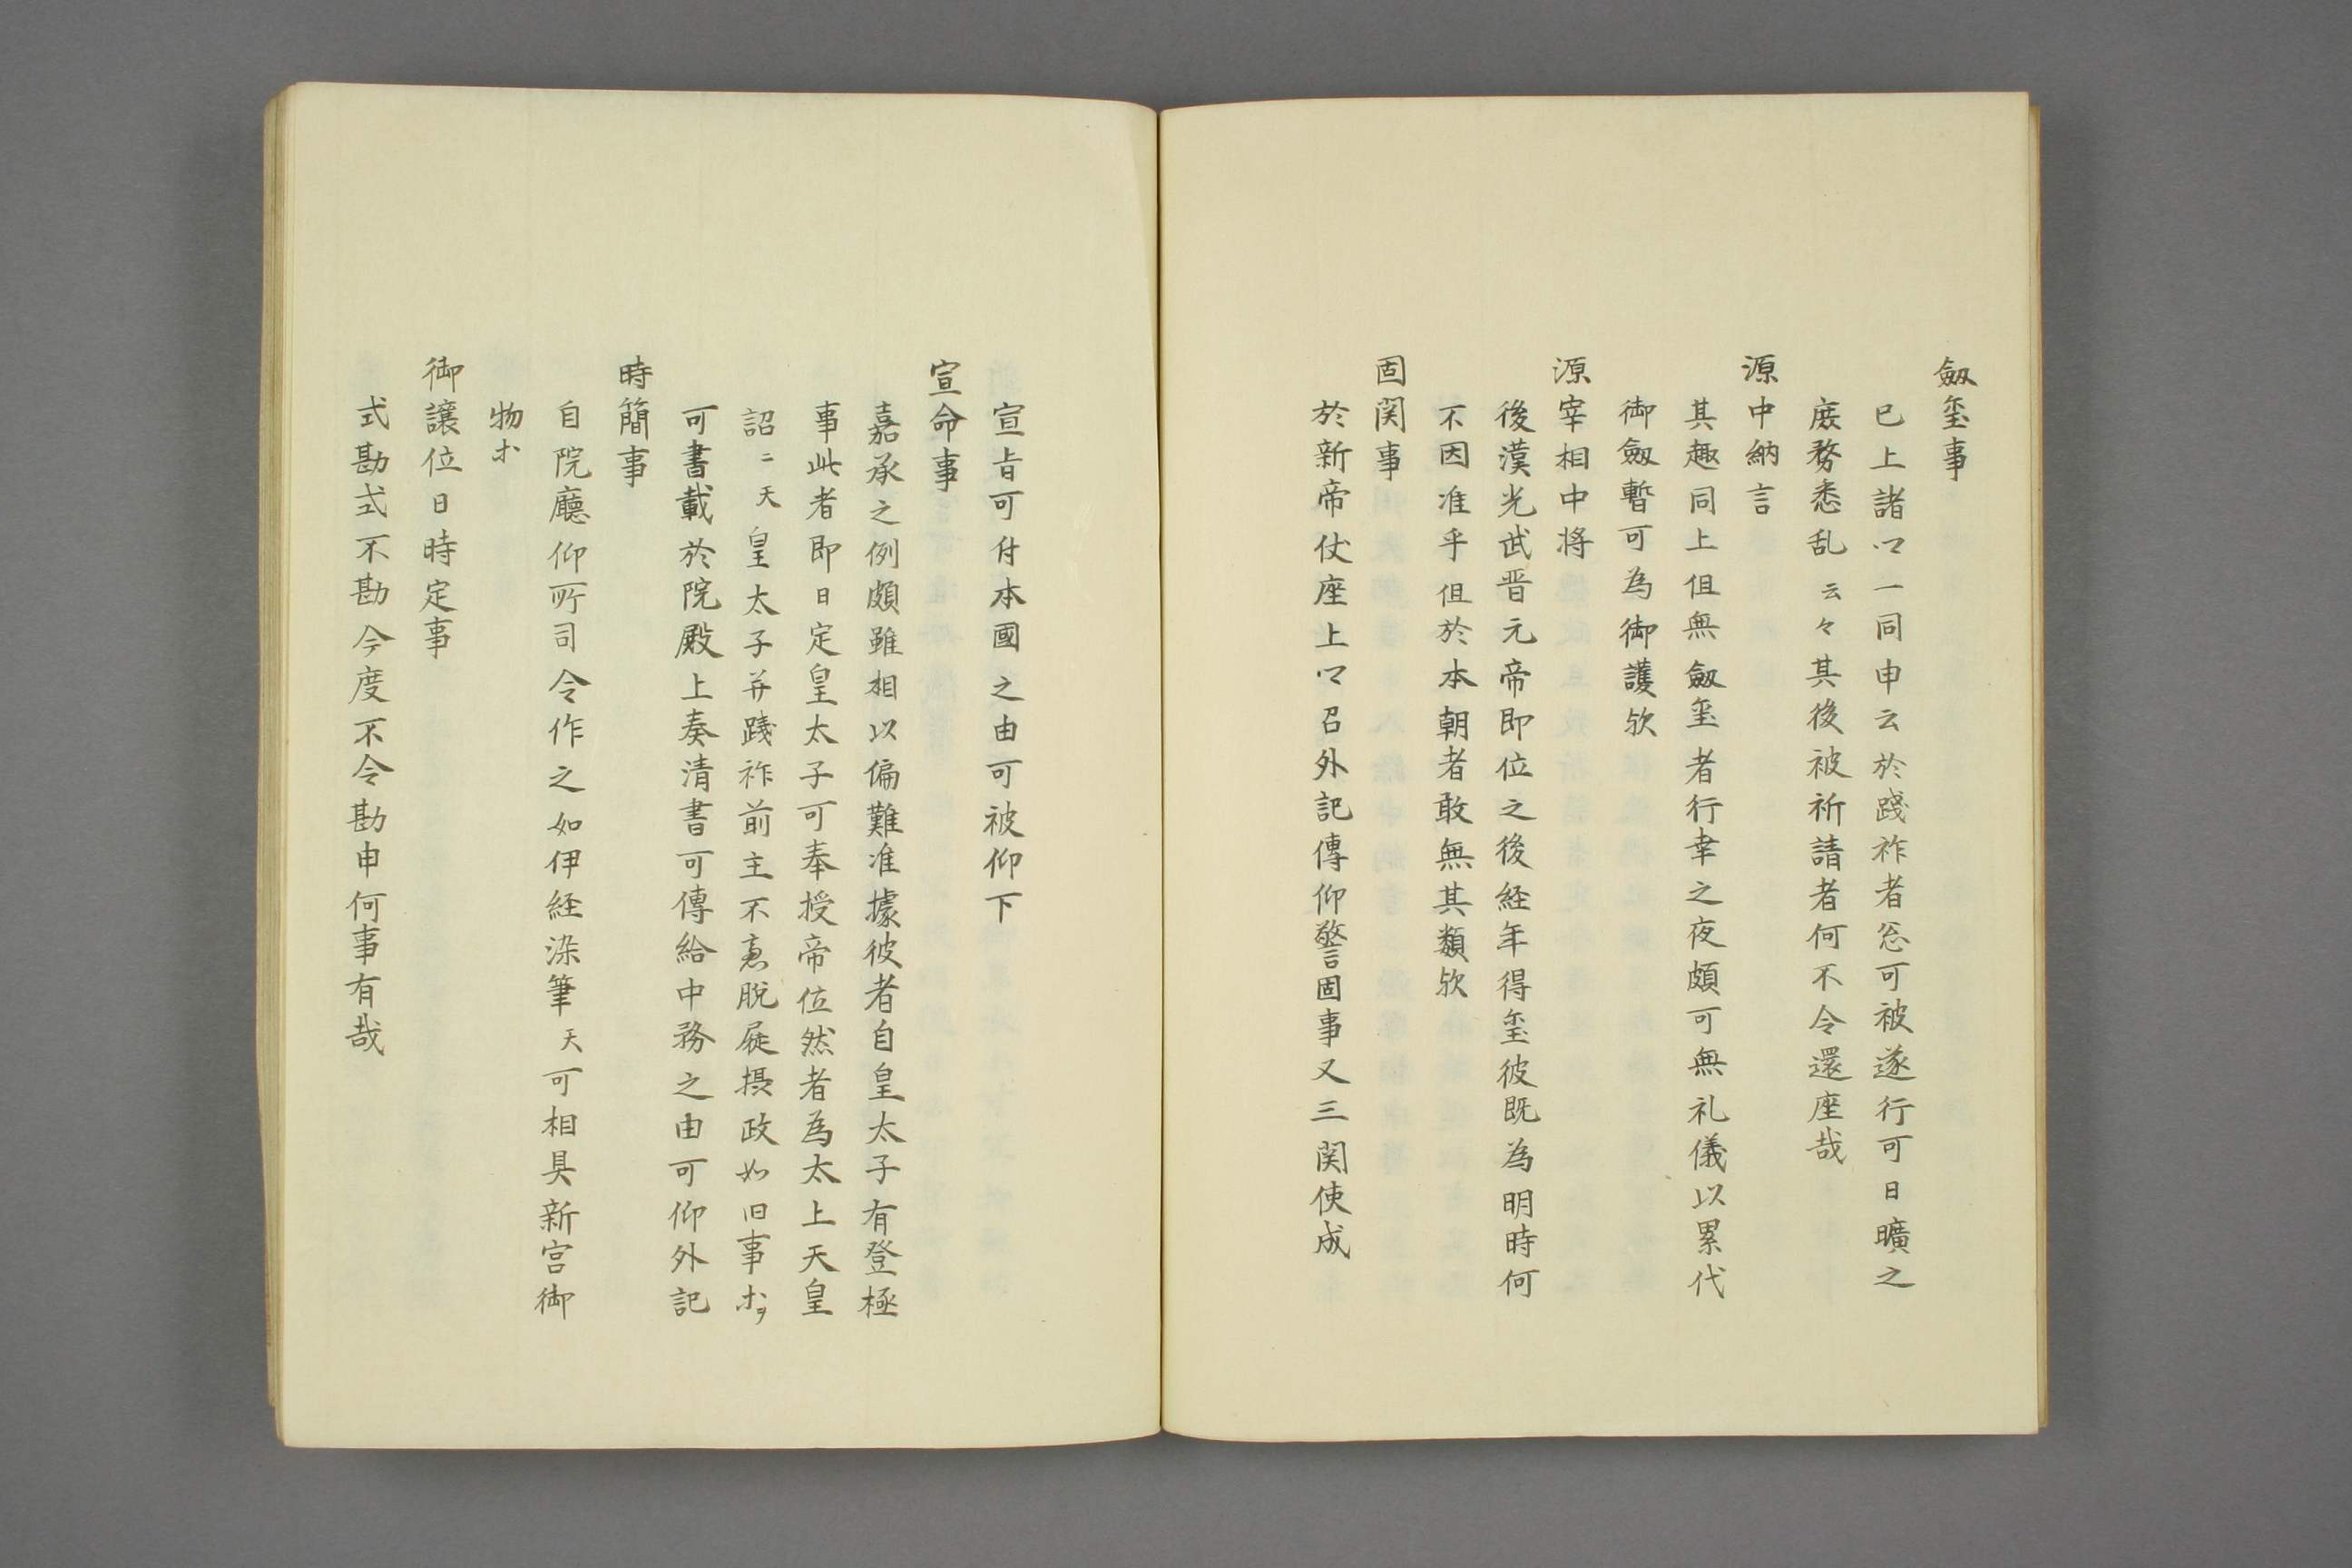 劔璽事
已上諸卿一同申云於踐祚者忩可被遂行可日曠之
庶務悉乱云々其後被祈請者何不令還座哉
源中納言
其趣同上但無劔璽者行幸之夜頗可無礼儀以累代
御劔暫可為御護欤
源宰相中将
後漢光武晋元帝即位之後経年得璽彼既為明時何
不因准乎但於本朝者敢無其類欤
固関事
於新帝仗座上卿召外記傳仰警固事又三関使成
宣旨可付本國之由可被仰下
宣命事
嘉承之例頗雖相似偏難准據彼者自皇太子有登極
事此者即日定皇太子可奉授帝位然者為太上天皇
詔ニ天皇太子并踐祚前主不意脱屣摂政如旧事等ヲ
可書載於院殿上奏清書可傳給中務之由可仰外記
時簡事
自院廳仰所司令作之如伊経染筆天可相具新宮御
物等
御讓位日時定事
式勘式不勘今度不令勘申何事有哉